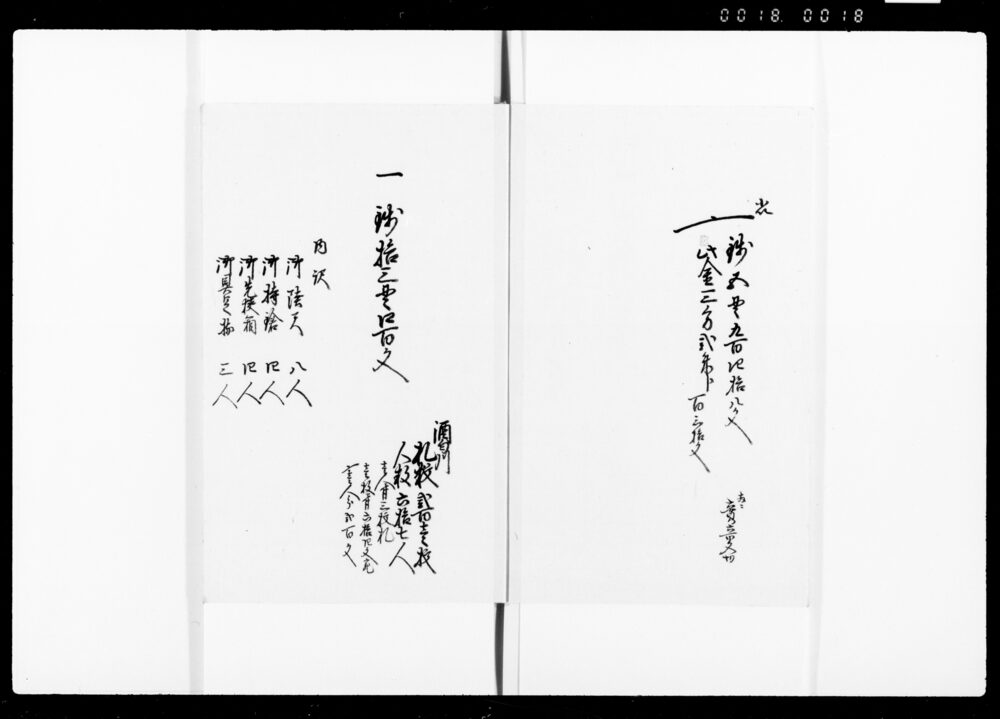 0018.0018
一 銭五貫九百四拾八文
此金三分弐朱ト
百三拾文
一 銭拾三貫四百文
酒川
札数弐百壱枚
人数六拾七人
壱人前三枚札
壱枚前六拾四文
壱人分弐百文
内訳
御陸尺 八人
御持鎗 四人
御先挾箱 四人
御具足 三人